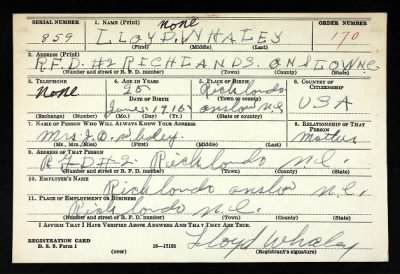 SERIAL NUMBER 1. NAME (Print) none ORDER NUMBER
859 LLOYD. WHALEY 170
(First) (Middle) (Last)
2. ADDRESS (Print)
R.F.D. #2 RICHLANDS. ONSLOW N.C.
(Number and street or R. F. D. number) (Town) (County) (State)
3. TELEPHONE 4. AGE IN YEARS 5. PLACE OF BIRTH 6. COUNTRY OF CITIZENSHIP
none 25 Richlands
DATE OF BIRTH (Town or county) USA
June 1915 onslow N.C.
(Exchange) (Number) (Mo.) (Day) (Yr.) (State or country)
7. NAME OF PERSON WHO WILL ALWAYS KNOW YOUR ADDRESS 8. RELATIONSHIP OF THAT PERSON
Mrs. J. Whaley Mother
(Mr., Mrs., Miss) (First) (Middle) (Last)
9. ADDRESS OF THAT PERSON
R.F.D #2. Richlands N.C.
(Number and street or R. F. D. number) (Town) (County) (State)
10. EMPLOYER'S NAME
Richlands onslow N.C.
11. PLACE OF EMPLOYMENT OR BUSINESS
Richlands N.C.
(Number and street or R. F. D. number) (Town) (County) (State)
I AFFIRM THAT I HAVE VERIFIED ABOVE ANSWERS AND THAT THEY ARE TRUE.
REGISTRATION CARD Lloyd Whaley
D. S. S. Form 1 (over) 16—17105 (Registrant's signature)